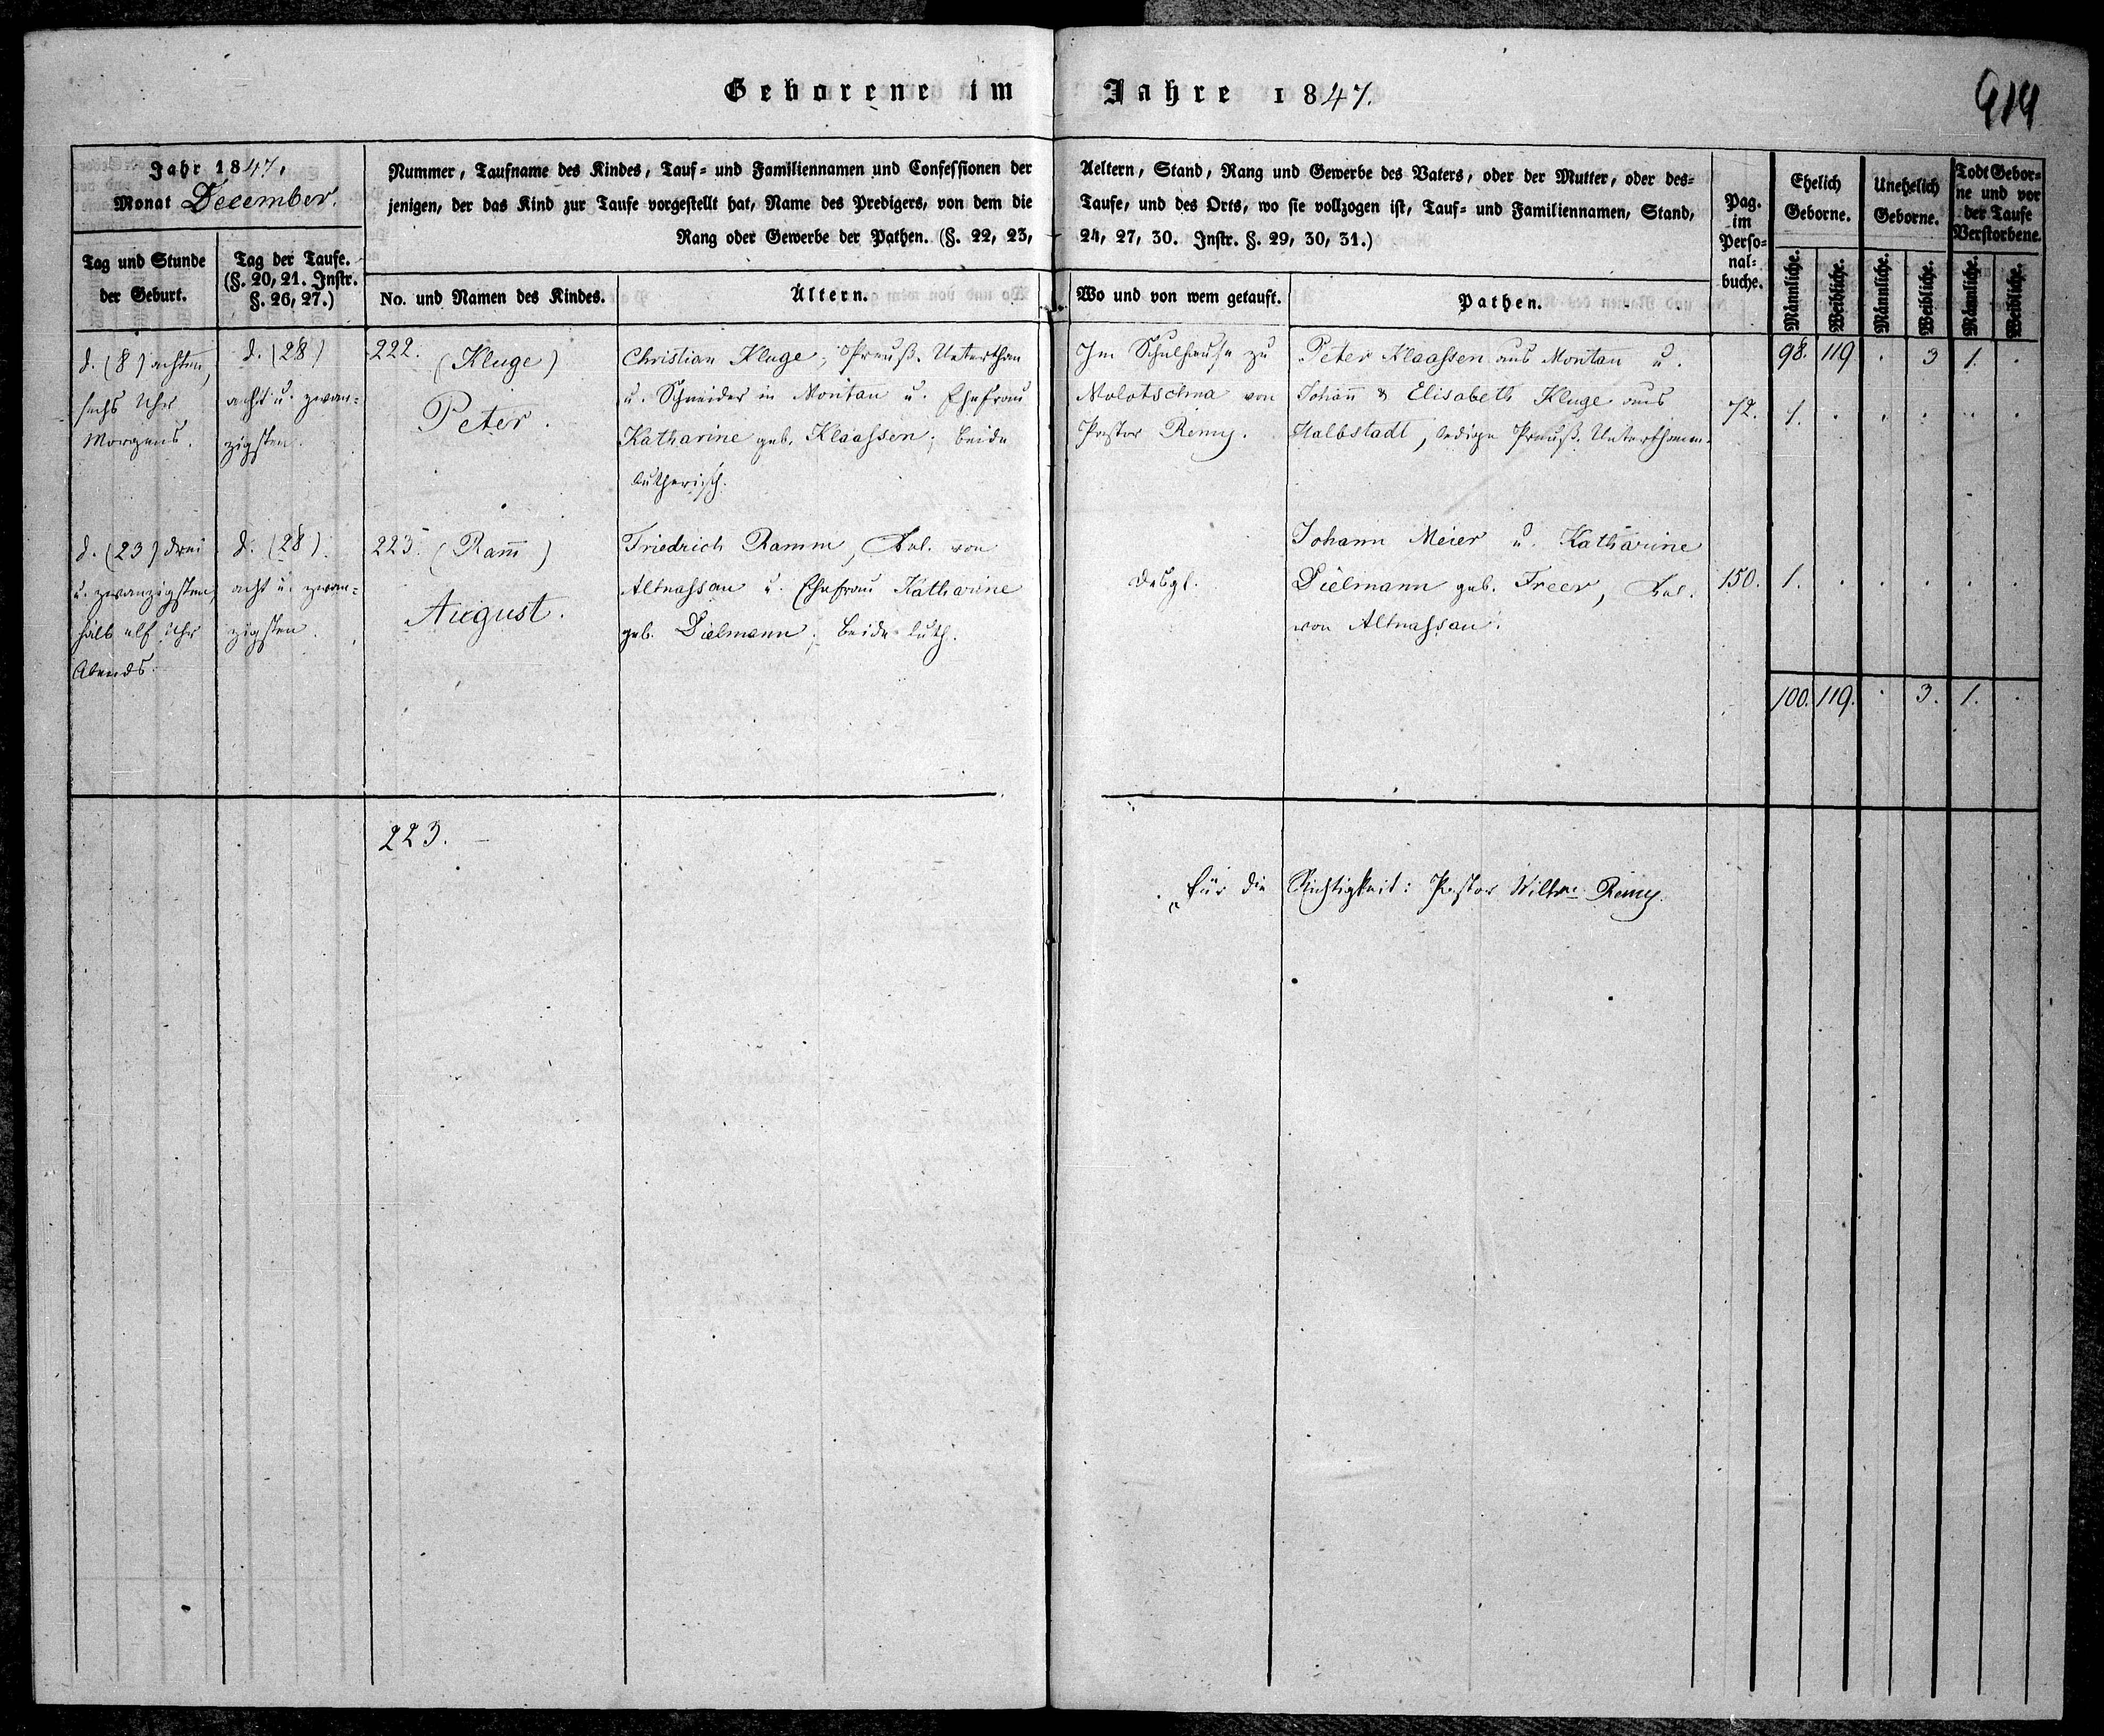 Geborene im Jahre 1847.
919
Jahr 1847.
Monat December.
Tag und Stunde
der Geburt.
Tag der Taufe.
(§. 20, 21. Instr.
§. 26, 27.)
Nummer, Taufname des Kindes, Tauf- und Familiennamen und Confessionen der Aeltern, Stand, Rang und Gewerbe des Vaters, oder der Mutter, oder des-
jenigen, der das Kind zur Taufe vorgestellt hat, Name des Predigers, von dem die Taufe, und des Orts, wo sie vollzogen ist, Tauf- und Familiennamen, Stand,
Rang oder Gewerbe der Pathen. (§. 22, 23, 24, 27, 30. Instr. §. 29, 30, 31.)
No. und Namen des Kindes.
Ältern.
Wo und von wem getauft.
Pathen.
Pag.
im
Perso-
nal-
buche.
Ehelich
Geborne.
Unehelich
Geborne.
Todt Gebor-
ne und vor
der Taufe
Verstorbene.
Männliche.
Weibliche.
Männliche.
Weibliche.
Männliche.
Weibliche.
d. (8) achten,
sechs Uhr
Morgens.
d. (28)
acht u. zwan-
zigsten.
222. (Kluge)
Peter.
Christian Kluge, Preuß. Unterthan
u. Schneider in Montau u. Ehefrau
Katharine geb. Klaassen; beide
lutherisch.
Im Schulhause zu
Molotschna von
Pastor Remy.
Peter Klaassen aus Montau u.
Johan̄ & Elisabeth Kluge aus
Halbstadt, ledige Preuß. Unterthanen.
72.
98. 119 . 3 1. .
1. . . . . .
d. (23) drei
u. zwanzigsten,
halb elf Uhr
Abends.
d. (28)
acht u. zwan-
zigsten.
223. (Ram̄)
August.
Friedrich Ramm, Kol. von
Altnassau u. Ehefrau Katharine
geb. Dielmann; beide luth.
desgl.
Johann Meier u. Katharine
Dielmann geb. Freer, Kol.
von Altnassau.
150.
1. . . . . .
100. 119. . 3. 1. .
223. –
Für die Richtigkeit: Pastor Wilh. Remy.